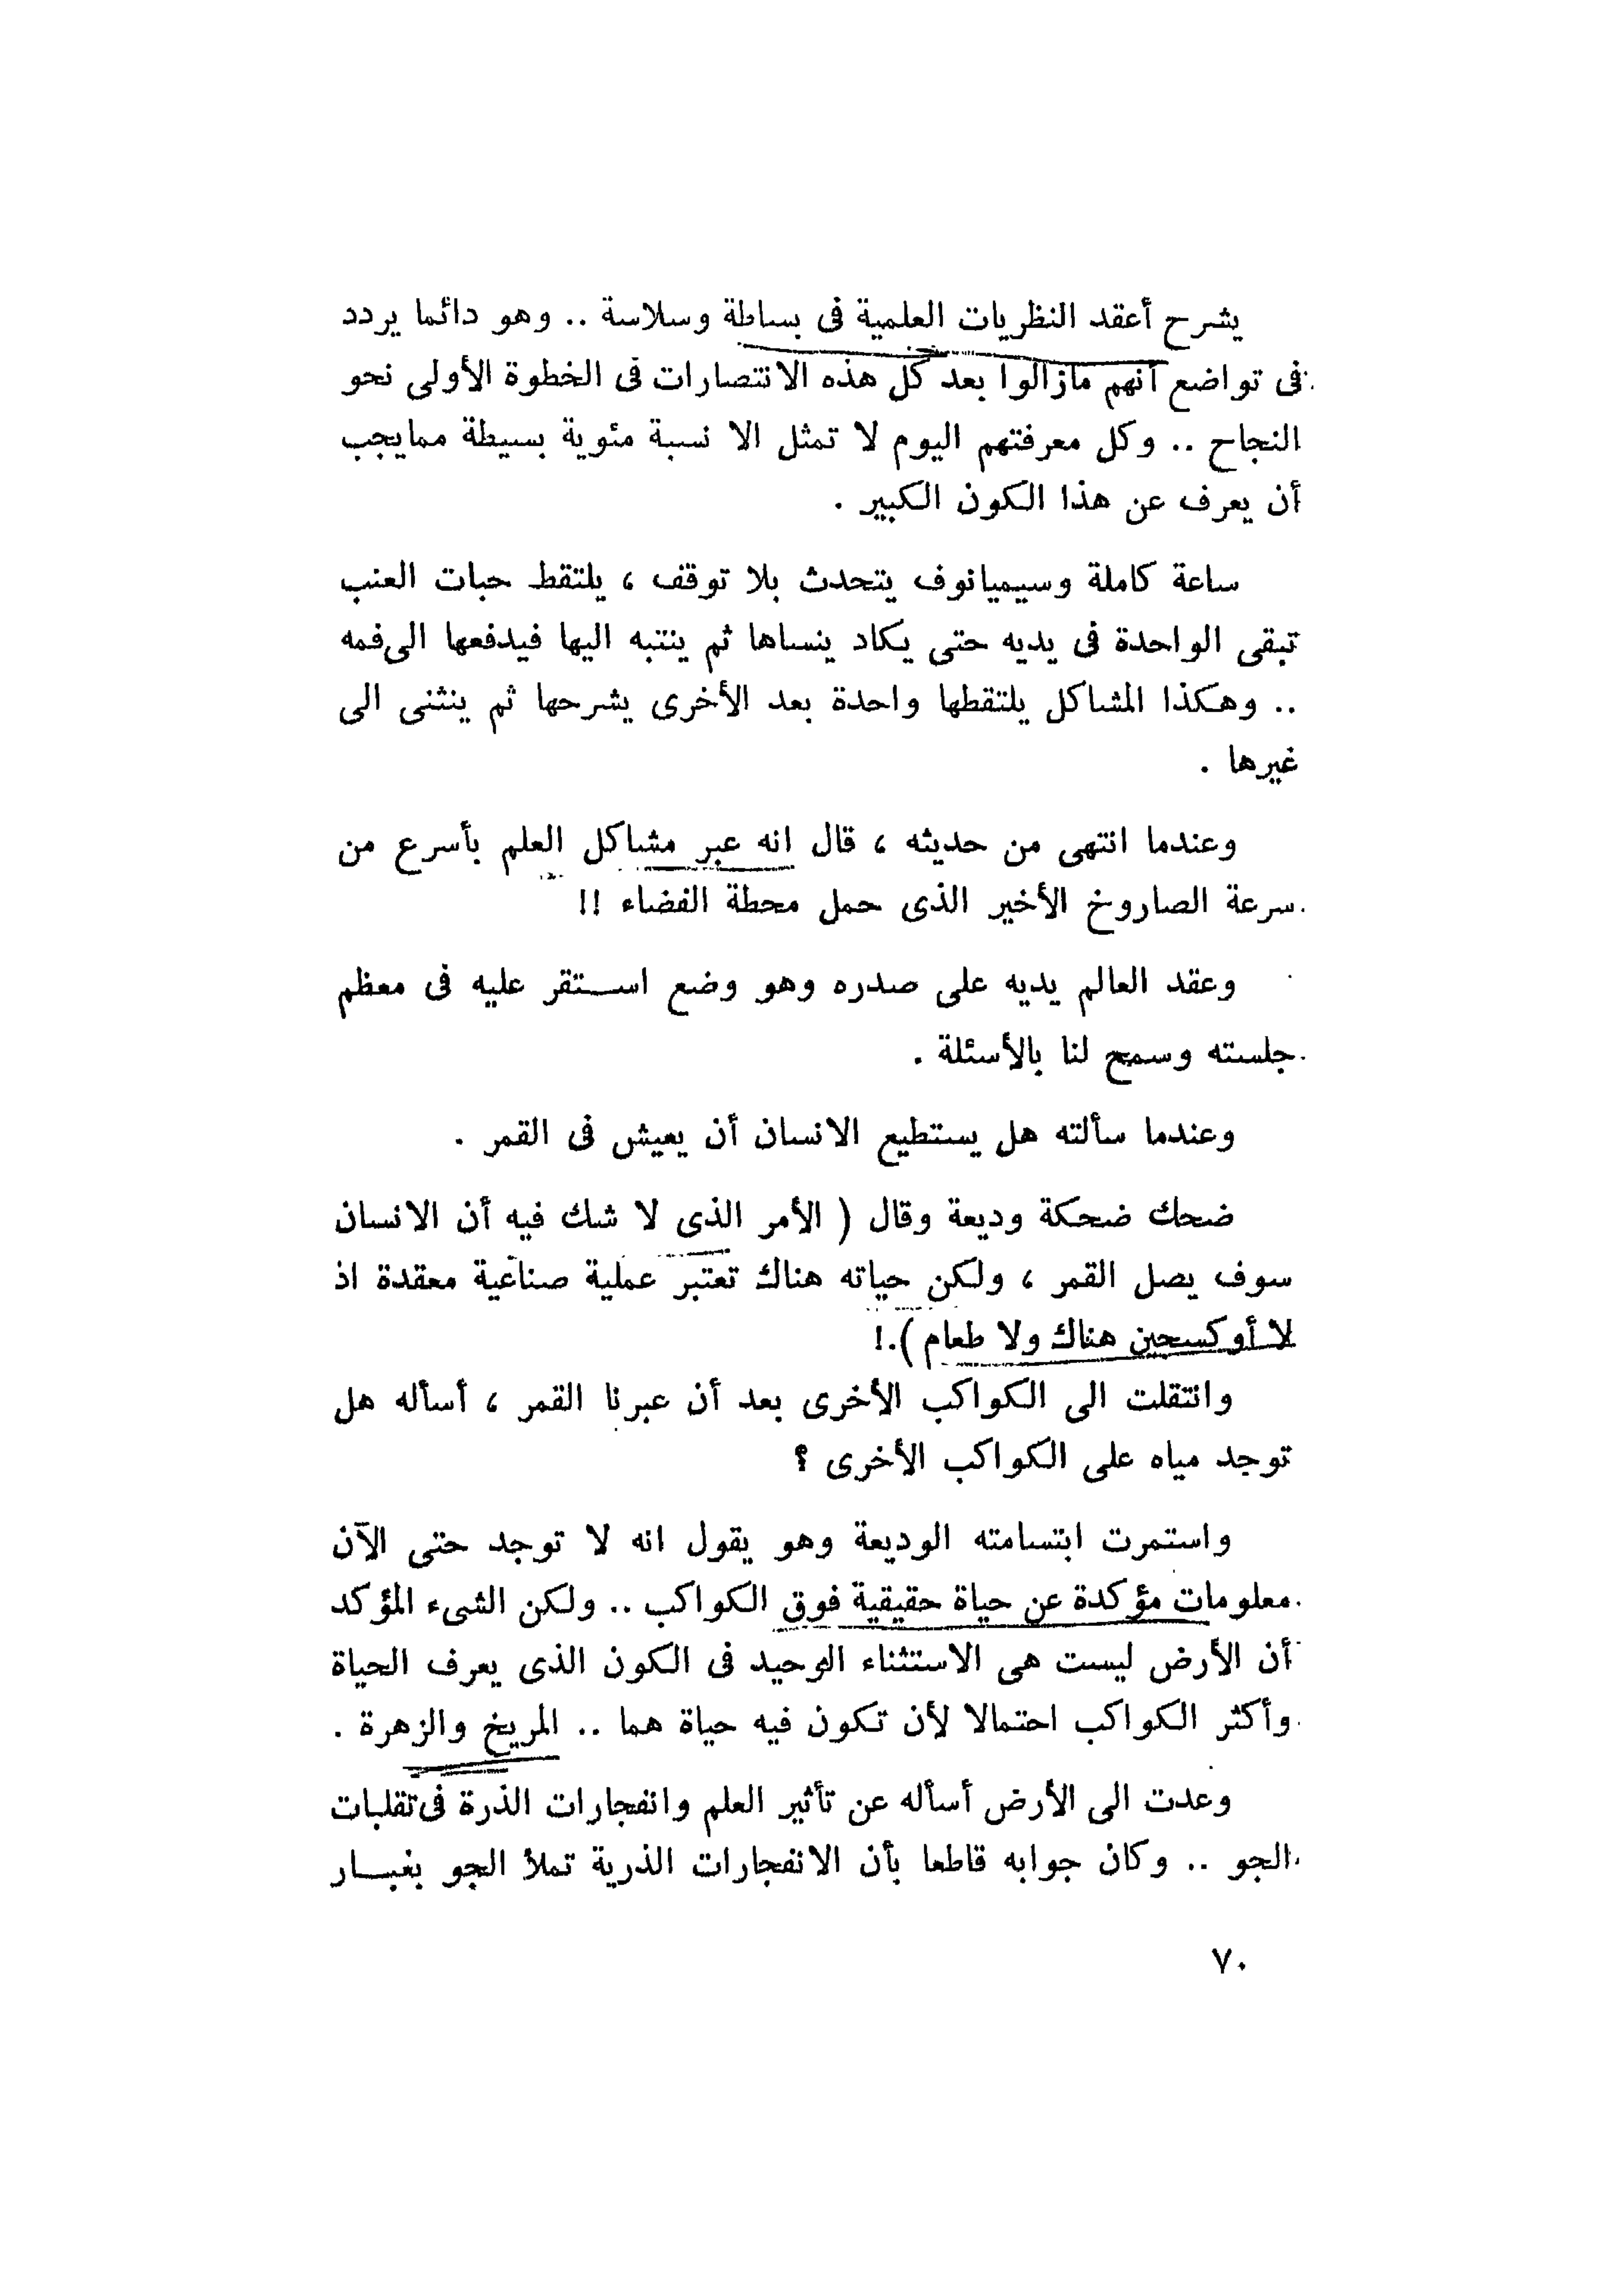 يشرح أعقد النظريات العلمية فى بساطة وسلاسة .. وهو دائما يردد
فى تواضع أنهم مازالوا بعد كل هذه الانتصارات فى الخطوة الأولى نحو
النجاح .. وكل معرفتهم اليوم لا تمثل الا نسبة مئوية بسيطة ممايجب
أن يعرف عن هذا الكون الكبير .
ساعة كاملة وسيميانوف يتحدث بلا توقف ، يلتقط حبات العنب
تبقى الواحدة فى يديه حتى يكاد ينساها ثم ينتبه اليها فيدفعها الى فمه
.. وهكذا المشاكل يلتقطها واحدة بعد الأخرى يشرحها ثم ينثنى الى
غيرها .
وعندما انتهى من حديثه ، قال انه عبر مشاكل العلم بأسرع من
سرعة الصاروخ الأخير الذى حمل محطة الفضاء !!
وعقد العالم يديه على صدره وهو وضع استقر عليه فى معظم
جلسته وسمح لنا بالأسئلة .
وعندما سألته هل يستطيع الانسان أن يعيش فى القمر .
ضحك ضحكة وديعة وقال ( الأمر الذى لا شك فيه أن الانسان
سوف يصل القمر ، ولكن حياته هناك تعتبر عملية صناعية معقدة اذ
لا أوكسجين هناك ولا طعام ).!
وانتقلت الى الكواكب الأخرى بعد أن عبرنا القمر ، أسأله هل
توجد مياه على الكواكب الأخرى ؟
واستمرت ابتسامته الوديعة وهو يقول انه لا توجد حتى الآن
معلومات مؤكدة عن حياة حقيقية فوق الكواكب .. ولكن الشىء المؤكد
أن الأرض ليست هى الاستثناء الوحيد فى الكون الذى يعرف الحياة
وأكثر الكواكب احتمالا لأن تكون فيه حياة هما .. المريخ والزهرة .
وعدت الى الأرض أسأله عن تأثير العلم وانفجارات الذرة فى تقلبات
الجو .. وكان جوابه قاطعا بأن الانفجارات الذرية تملأ الجو بغبار
٧٠